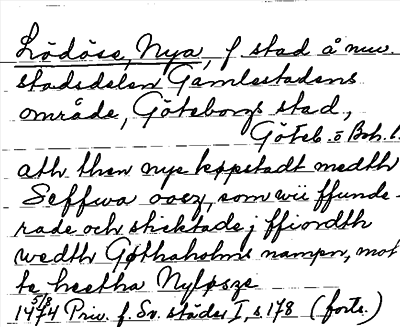 Lödöse, Nya, f stad å nuv.
stadsdelen Gamlestadens
område, Göteborgs stad,
Göteb. o Boh. l.
ath then nye køpstadt medth
Seffwa oosz, som wii ffunde-
rade och sticktade j ffiordth
wedth Gøthaholms nampn, mot
te heetha Nyløsze
5/8
1474 Priv. f. Sv. städer I, s 178 (forts.)